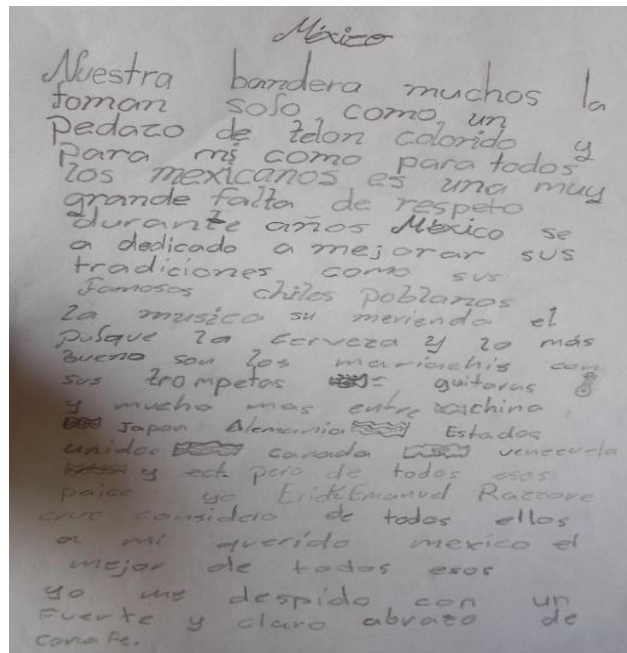 México
Nuestra bandera muchos la
toman solo como un
pedazo de telon colorido y
para mi como para todos
los mexicanos es una muy
grande falta de respeto
durante años México se
a dedicado a mejorar sus
tradiciones como sus
famosos chiles poblanos
la musica su merienda el
pulque la cerveza y lo más
bueno son los mariachis con
sus trompetas guitaras
y mucho mas entre china
Japon Alemania Estados
unidos canada venecuela
y ect. pero de todos esos
paise yo Erick Emanuel
cruz considero de todos ellos
a mi querido mexico el
mejor de todos esos
yo me despido con un
fuerte y claro abrazo de